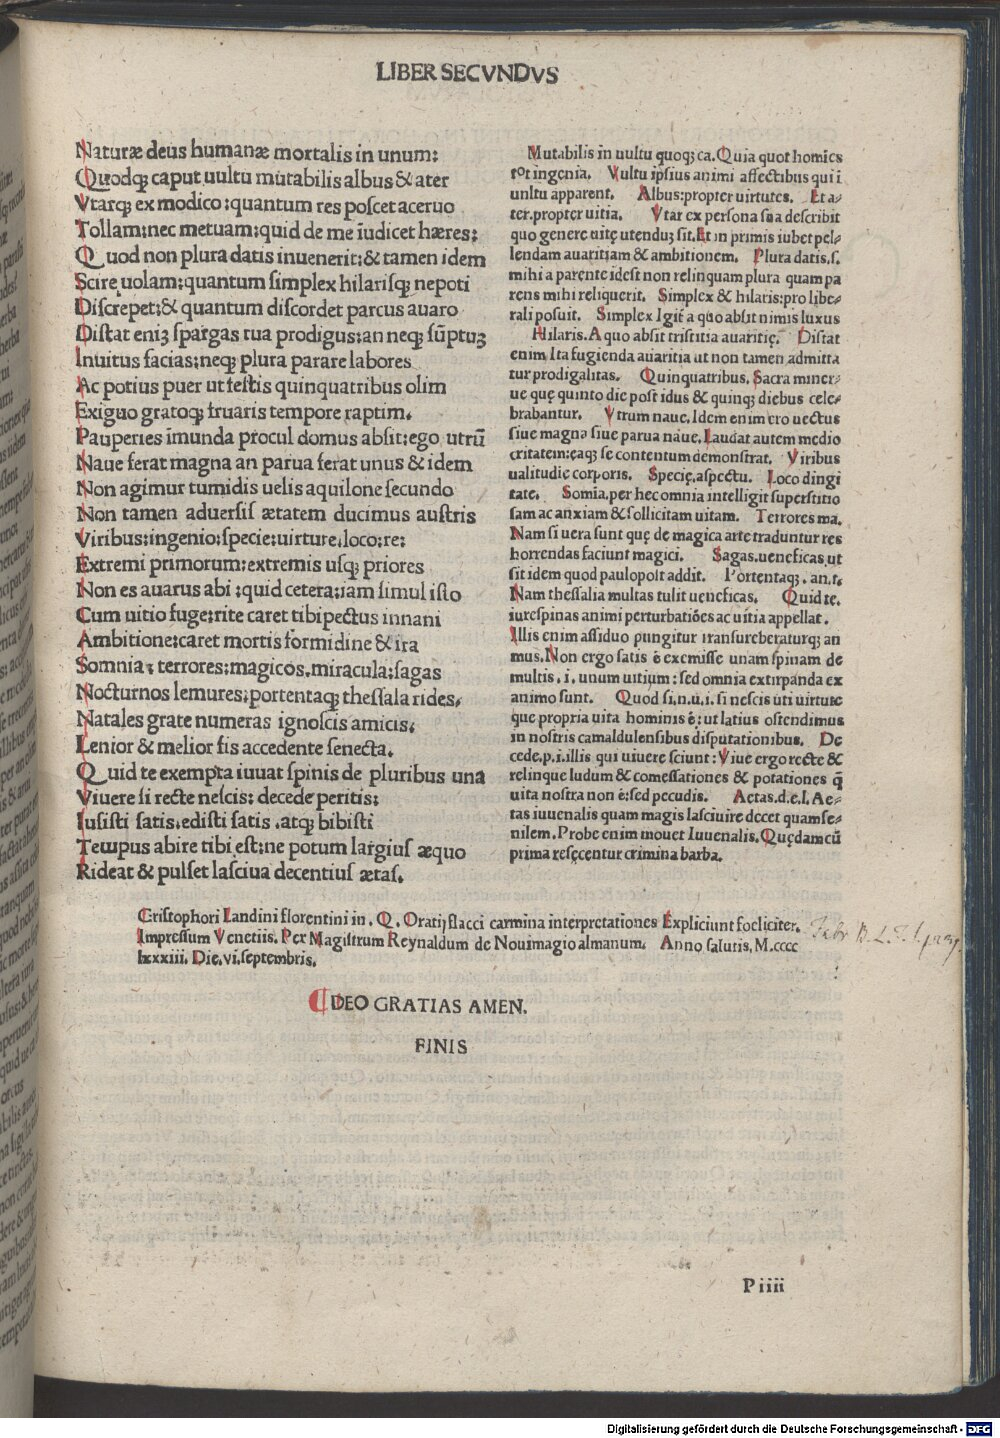 LIBER SECVNDVS
Naturæ deus humanæ mortalis in unum:
Quodq; caput uultu mutabilis albus & ater
Vtarq; ex modico: quantum res poscet aceruo
Tollam: nec metuam: quid de me iudicet hæres:
Quod non plura datis inuenerit: & tamen idem
Scire uolam: quantum simplex hilarisq; nepoti
Discrepet: & quantum discordet parcus auaro
Distat enīȝ spargas tua prodigus: an neq; sūptuȝ
Inuitus facias: neq; plura parare labores
Ac potius puer ut festis quinquatribus olim
Exiguo gratoq; fruaris tempore raptim.
Pauperies īmunda procul domus absit: ego utrū
Naue ferat magna an parua ferat unus & idem
Non agimur tumidis uelis aquilone secundo
Non tamen aduersis ætatem ducimus austris
Viribus: ingenio: specie: uirture: loco: re:
Extremi primorum: extremis usq; priores
Non es auarus abi: quid cetera: iam simul isto
Cum uitio fuge: rite caret tibi pectus innani
Ambitione: caret mortis formidine & ira
Somnia: terrores: magicos. miracula: sagas
Nocturnos lemures: portentaq; thessala rides.
Natales grate numeras ignoscis amicis.
Lenior & melior fis accedente senecta.
Quid te exempta iuuat spinis de pluribus una
Viuere si recte nescis: decede peritis:
Lusisti satis. edisti satis. atq; bibisti
Tempus abire tibi est: ne potum largius æquo
Rideat & pulset lasciua decentius ætas.
Mutabilis in uultu quoq; ca. Quia quot homies
tot ingenia. Vultu ipsius animi affectibus qui ī
unltu apparent. Albus: propter uirtutes. Et a-
ter. propter uitia. Vtar ex persona sua describit
quo genere uitę utenduȝ sit. Et in primis iubet pel-
lendam auaritiam & ambitionem. Plura datis. s.
mihi a parente idest non relinquam plura quam pa
rens mihi reliquerit. Simplex & hilaris: pro libe-
rali posuit. Simplex Igit̄ a quo absit nimis luxus
Hilaris. A quo absit tristitia auaritię. Distat
enim. Ita fugienda auaritia ut non tamen admitta
tur prodigalitas. Quinquatribus. Sacra miner-
ue quę quinto die post idus & quinq; diebus cele-
brabantur. Vtrum naue. Idem enim ero uectus
siue magna siue parua naue. Laudat autem medio
critatem: eaq; se contentum demonstrat. Viribus
ualitudie corporis. Specię. aspectu. Loco dingi
tate. Somia. per hec omnia intelligit superstitio
sam ac anxiam & sollicitam uitam. Terrores ma.
Nam si uera sunt quę de magica arte traduntur res
horrendas faciunt magici. Sagas. ueneficas ut
sit idem quod paulopost addit. Portentaq;. an. t.
Nam thessalia multas tulit ueneficas. Quid te.
iure spinas animi perturbatiōes ac uitia appellat.
Illis enim assiduo pungitur transureberaturq; an
mus. Non ergo satis ē exemisse unam spinam de
multis. i. unum uitium: sed omnia extirpanda ex
animo sunt. Quod si. n. u. i. si nescis uti uirtute
que propria uita hominis ē: ut latius ostendimus
in nostris camaldulensibus disputationibus. De
cede. p. i. illis qui uiuere sciunt: Viue ergo recte &
relinque ludum & comessationes & potationes q̄
uita nostra non ē: sed pecudis. Aetas. d. e. l. Ae-
tas iuuenalis quam magis lasciuire decet quam se-
nilem. Probe enim mouet Iuuenalis. Quędam cū
prima resęcentur crimina barba.
Cristophori Landini florentini in. Q. Oratij flacci carmina interpretationes Expliciunt foeliciter.
Impressum Venetiis. Per Magistrum Reynaldum de Nouimagio almanum. Anno salutis. M.cccc
lxxxiii. Die. vi. septembris.
DEO GRATIAS AMEN.
FINIS
P iiii
Digitalisierung gefördert durch die Deutsche Forschungsgemeinschaft - DFG